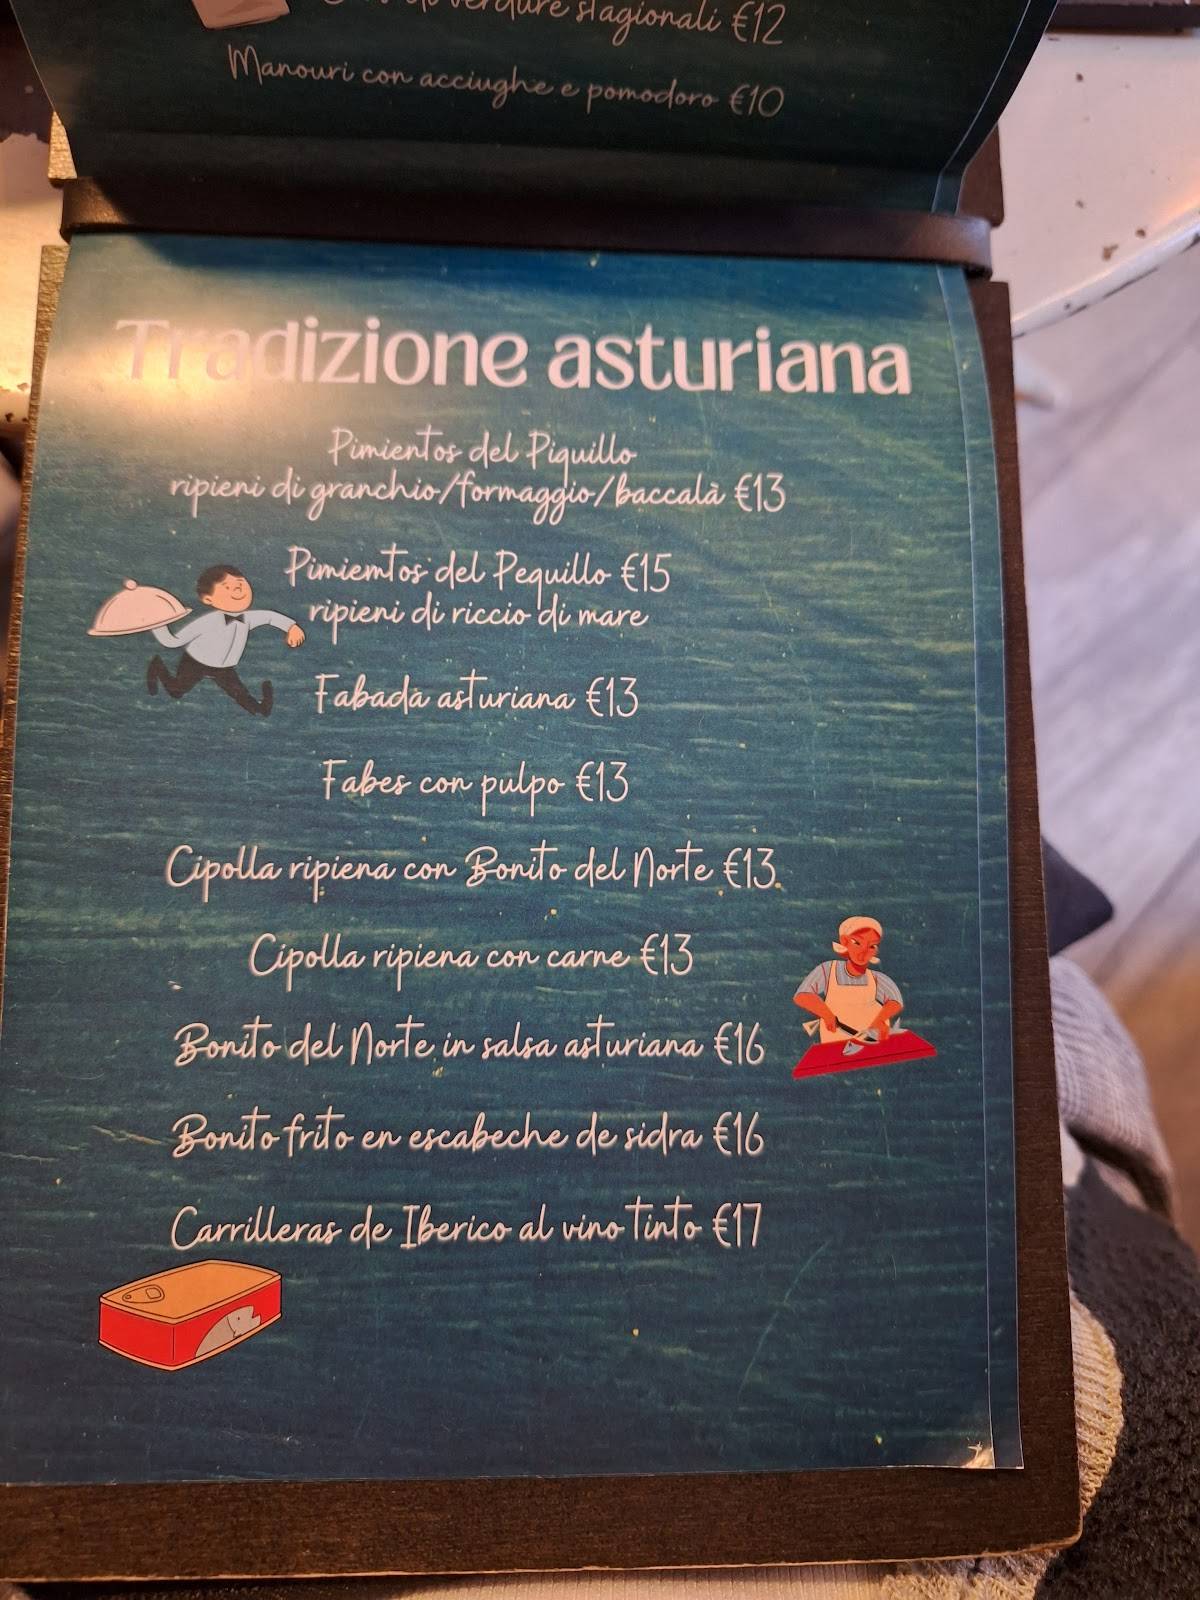 di verdure stagionali €12
Manouri con acciughe e pomodoro €10
Tradizione asturiana
Pimientos del Piquillo
ripieni di granchio/formaggio/baccalà €13
Pimiemtos del Pequillo €15
ripieni di riccio di mare
Fabada asturiana €13
Fabes con pulpo €13
Cipolla ripiena con Bonito del Norte €13
Cipolla ripiena con carne €13
Bonito del Norte in salsa asturiana €16
Bonito frito en escabeche de sidra €16
Carrilleras de Iberico al vino tinto €17